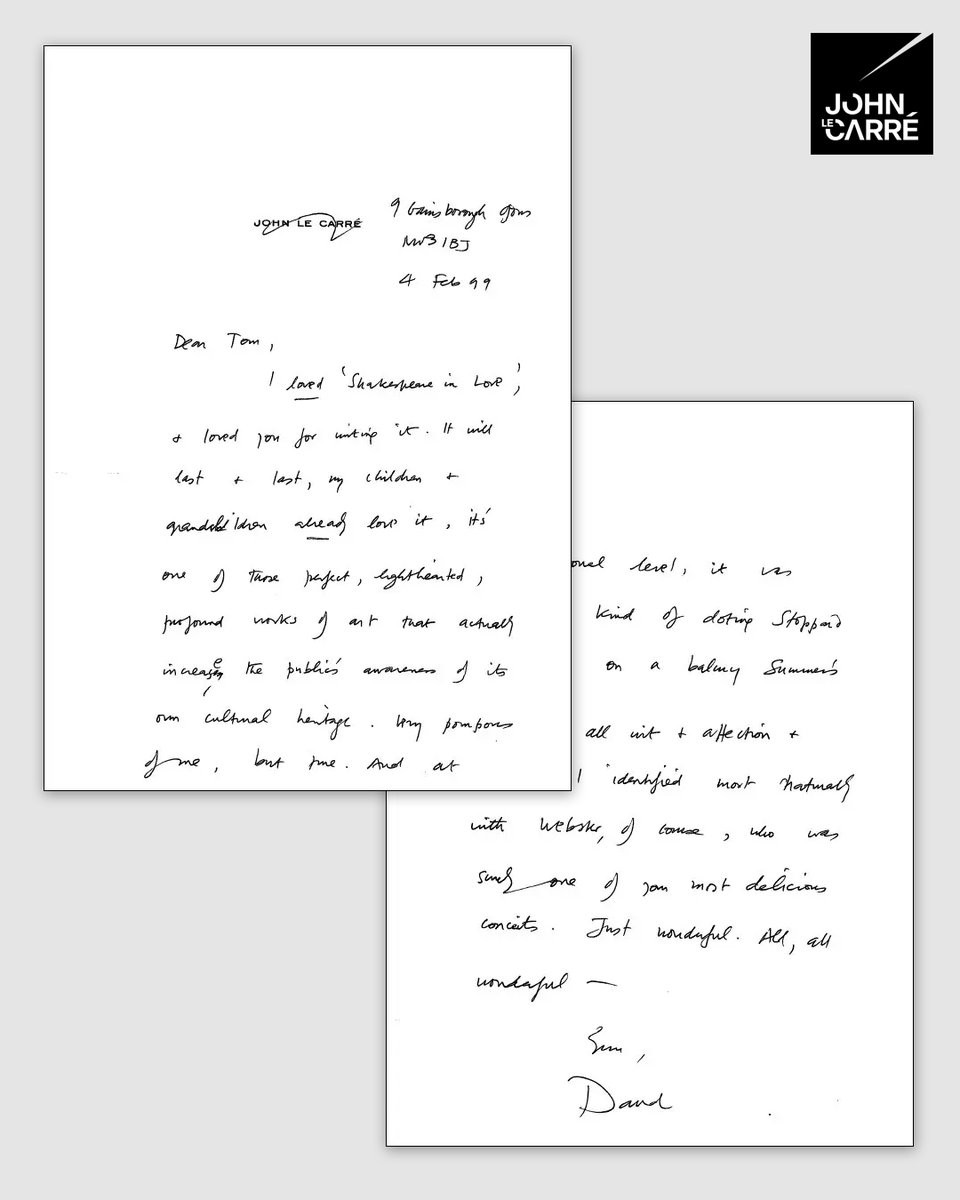 JOHN LE CARRÉ
JOHN LE CARRÉ
9 Gainsborough Gdns
NW3 1BJ
4 Feb 99
Dear Tom,
I loved 'Shakespeare in Love',
+ loved you for writing it. It will
last + last, my children +
grandchildren already love it, it's
one of those perfect, lighthearted,
profound works of art that actually
increase the public's awareness of its
own cultural heritage. Very pompous
of me, but true. And at
onal level, it was
kind of doting Stoppard
on a balmy Summer's
all wit + affection +
I identified most naturally
with Webster, of course, who was
surely one of your most delicious
conceits. Just wonderful. All, all
wonderful —
David